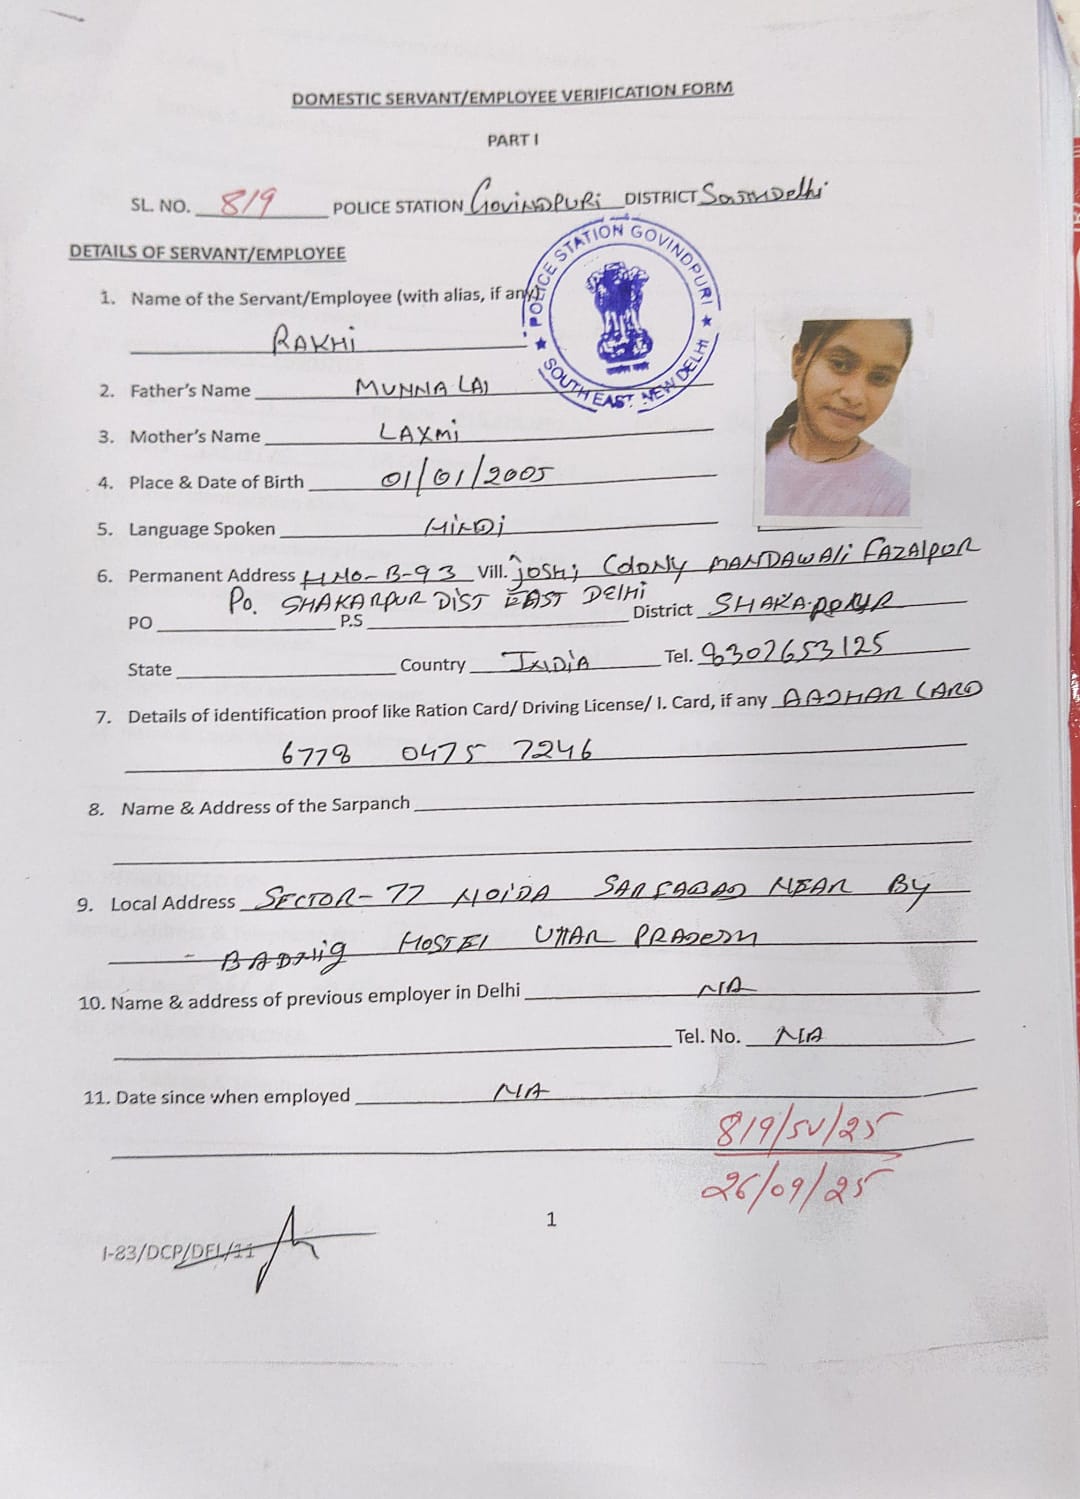 DOMESTIC SERVANT/EMPLOYEE VERIFICATION FORM
PART I
SL. NO. 819 POLICE STATION GOVINDPURI DISTRICT South Delhi
DETAILS OF SERVANT/EMPLOYEE
POLICE STATION GOVINDPURI ★ SOUTH EAST, NEW DELHI ★
1. Name of the Servant/Employee (with alias, if any)
RAKHI
2. Father's Name MUNNA LAl
3. Mother's Name LAXMI
4. Place & Date of Birth 01/01/2005
5. Language Spoken HINDI
6. Permanent Address H NO-B-93 Vill. JOSHI COLONY MANDAWALI FAZALPUR
PO. SHAKARPUR DIST EAST DElHI
PO P.S District
State Country INDIA Tel. 8302653125
7. Details of identification proof like Ration Card/ Driving License/ I. Card, if any AADHAR CARD
6778 0475 7246
8. Name & Address of the Sarpanch
9. Local Address SECTOR-77 NOIDA NEAR BY
HOSTEl UTTAR PRADESH
10. Name & address of previous employer in Delhi NA
Tel. No. NA
11. Date since when employed NA
819/SV/25
26/09/25
1
I-83/DCP/DEL/11